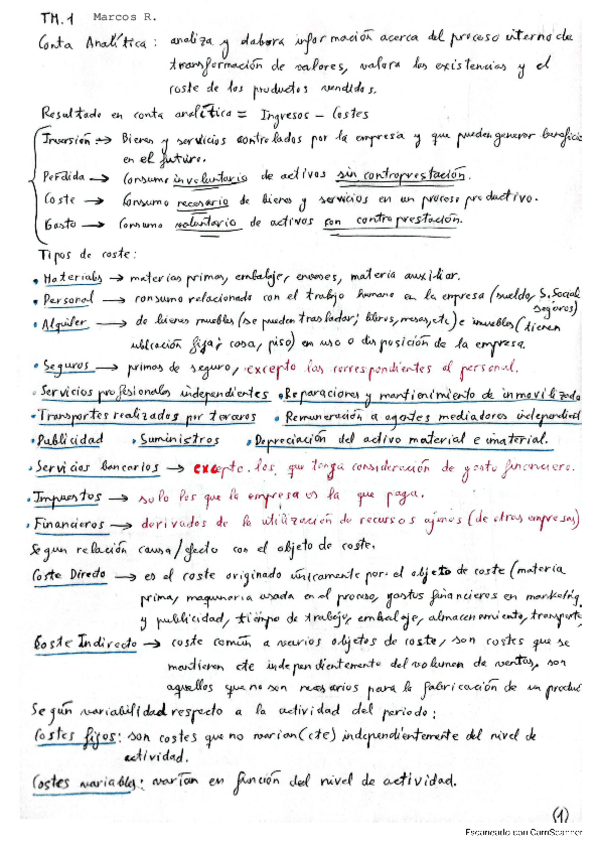 TM.1 Marcos R.
Conta Analítica: analiza y elabora información acerca del proceso interno de
transformación de valores, valora las existencias y el
coste de los productos vendidos.
Resultado en conta analítica = Ingresos - Costes
Inversión → Bienes y servicios controlados por la empresa y que pueden generar beneficio
en el futuro.
Perdida → Consumo involuntario de activos sin contraprestación.
Coste → Consumo necesario de bienes y servicios en un proceso productivo.
Gasto → Consumo voluntario de activos con contraprestación.
Tipos de coste:
• Materiales → materias primas, embalaje, envases, materia auxiliar.
• Personal → consumo relacionado con el trabajo humano en la empresa (sueldo, S. Social
seguros)
• Alquiler → de bienes muebles (se pueden trasladar; libros, mesas, etc) e inmuebles (tienen
ubicación fija; casa, piso) en uso o disposición de la empresa.
• Seguros → primas de seguro, excepto las correspondientes al personal.
• Servicios profesionales independientes • Reparaciones y mantenimiento de inmovilizado
• Transportes realizados por terceros • Remuneración a agentes mediadores independient
• Publicidad • Suministros • Depreciación del activo material e imaterial.
• Servicios bancarios → excepto los que tenga consideración de gasto financiero.
• Impuestos → solo los que la empresa es la que paga.
• Financieros → derivados de la utilización de recursos ajenos (de otras empresas)
Segun relación causa/efecto con el objeto de coste.
Coste Directo → es el coste originado únicamente por el objeto de coste (materia
prima, maquinaria usada en el proceso, gastos financieros en marketing
y publicidad, tiempo de trabajo, embalaje, almacenamiento, transporte
Coste Indirecto → coste común a varios objetos de coste, son costes que se
mantienen cte independientemente del volumen de ventas, son
aquellos que no son necesarios para la fabricación de un produc
Según variabilidad respecto a la actividad del periodo:
Costes fijos: son costes que no varian (cte) independientemente del nivel de
actividad.
Costes variables: varían en función del nivel de actividad.
(1)
Escaneado con CamScanner